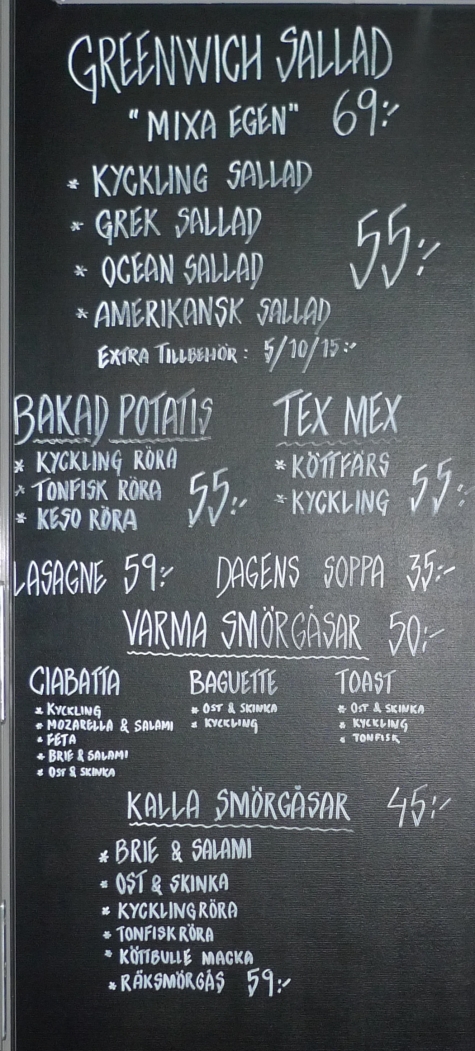 GREENWICH SALLAD
"MIXA EGEN" 69:-
* KYCKLING SALLAD
* GREK SALLAD
* OCEAN SALLAD
55:-
* AMERIKANSK SALLAD
EXTRA TILLBEHÖR: 5/10/15:-
BAKAD POTATIS
* KYCKLING RÖRA
* TONFISK RÖRA
* KESO RÖRA
55:-
TEX MEX
* KÖTTFÄRS
* KYCKLING
55:-
LASAGNE 59:- DAGENS SOPPA 35:-
VARMA SMÖRGÅSAR 50:-
CIABATTA
* KYCKLING
* MOZARELLA & SALAMI
* FETA
* BRIE & SALAMI
* OST & SKINKA
BAGUETTE
* OST & SKINKA
* KYCKLING
TOAST
* OST & SKINKA
* KYCKLING
* TONFISK
KALLA SMÖRGÅSAR 45:-
* BRIE & SALAMI
* OST & SKINKA
* KYCKLINGRÖRA
* TONFISKRÖRA
* KÖTTBULLE MACKA
* RÄKSMÖRGÅS 59:-